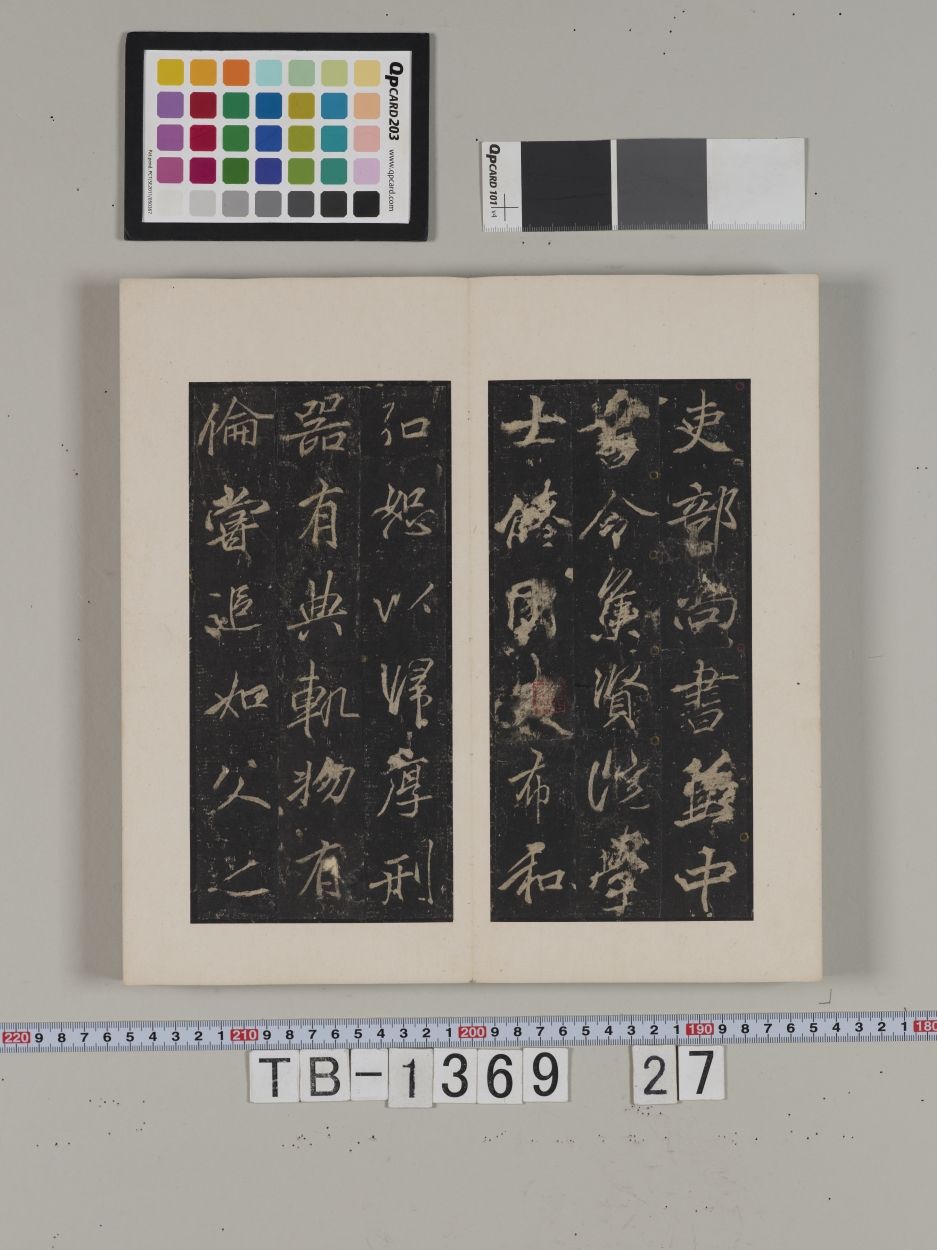 QPCARD 203 www.qpcard.com
QPCARD 101 v4
吏部尚書兼中
書令集賢院學
士脩國史布和
弘恕以歸厚刑
器有典軌物有
倫嘗追如父之
220 9 8 7 6 5 4 3 2 1 210 9 8 7 6 5 4 3 2 1 200 9 8 7 6 5 4 3 2 1 190 9 8 7 6 5 4 3 2 1 180
TB-1369 27